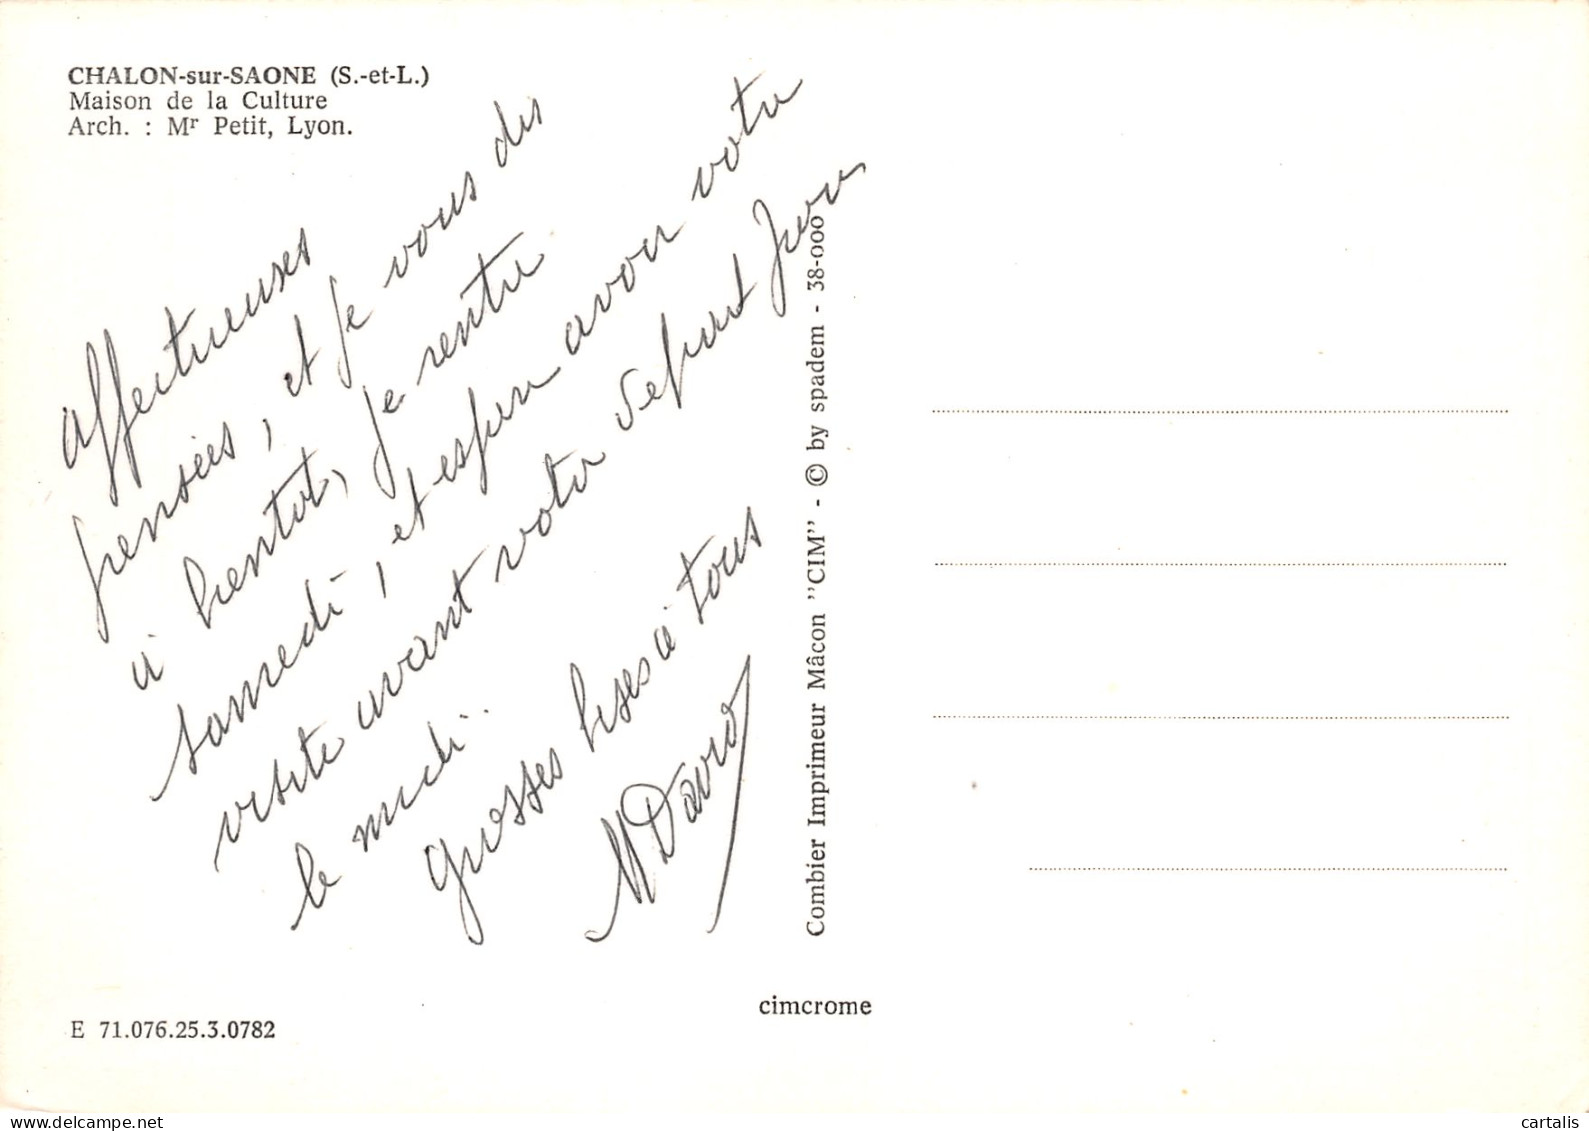 CHALON-sur-SAONE (S.-et-L.)
Maison de la Culture
Arch. : Mr Petit, Lyon.
affectueuses
pensées, et je vous dis
à bientot, je rentre
samedi, et espere avoir votre
visite avant votre depart pour
le midi.
grosses bises à tous
M David
Combier Imprimeur Mâcon "CIM" - © by spadem - 38-000
cimcrome
E 71.076.25.3.0782
delcampe.net
cartalis